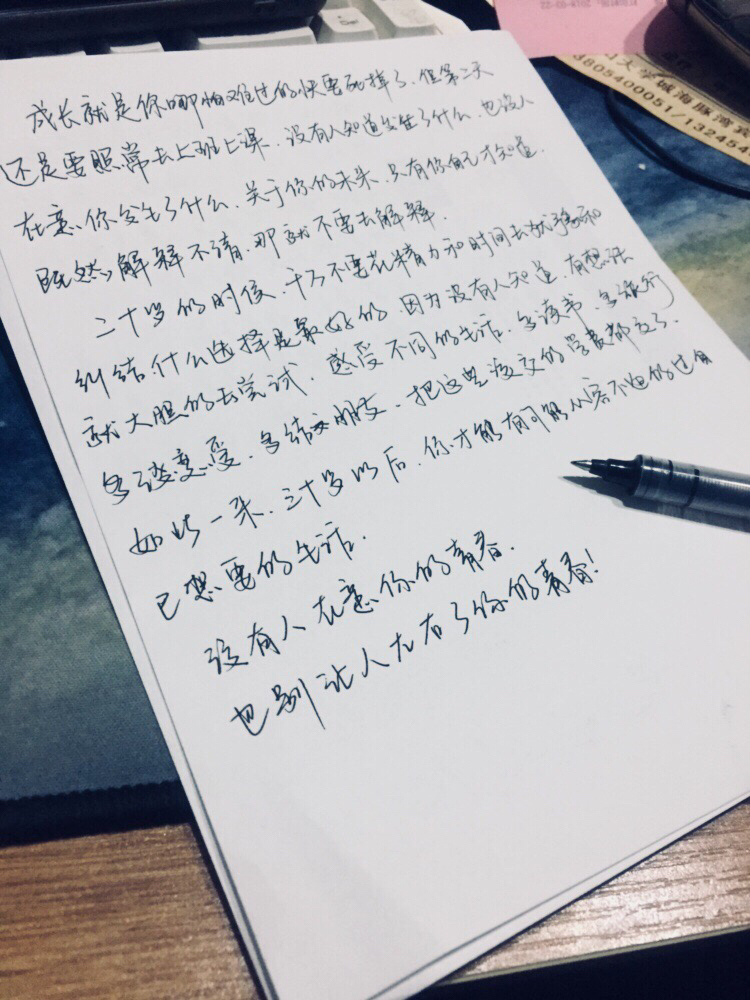 成长就是你哪怕难过的快要死掉了，但第二天
还是要照常去上班上课。没有人知道发生了什么，也没人
在意你发生了什么，关于你的未来，只有你自己才知道。
既然解释不清，那就不要去解释。
二十岁的时候，千万不要花精力和时间去犹豫和
纠结什么选择是最好的，因为没有人知道。有想法
就大胆的去尝试，感受不同的生活，多读书，多旅行
多谈恋爱，多结交朋友，把这些该交的学费都交了。
如此一来，三十岁以后，你才能有可能从容不迫的过自
己想要的生活。
没有人在意你的青春，
也别让人左右了你的青春！
3805400051/132454